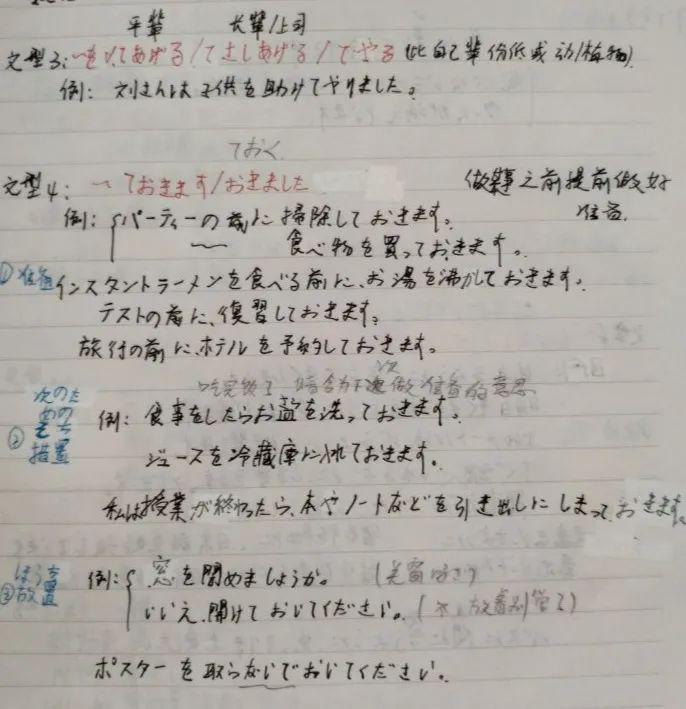 平辈 长辈/上司
文型3:~をてあげる/てさしあげる/てやる (比自己辈份低或动/植物)
例: 刘さんは子供を助けてやりました。
ておく
文型4: ~ておきます/おきました 做事之前提前做好
准备
例: パーティーの前に掃除しておきます。
~ 食べ物を買っておきます。
①准备 インスタントラーメンを食べる前に、お湯を沸かしておきます。
テストの前に、復習しておきます。
旅行の前に、ホテルを予約しておきます。
吃完饭了 暗含为下次做准备的意思
② 次のための 措置
例: 食事をしたらお盤を洗っておきます。
ジュースを冷蔵庫に入れておきます。
私は授業が終わったら、本やノートなどを引き出しにしまっておきます。
③ほうち 放置
例: 窓を閉めましょうか。 (关窗好吗)
いいえ、開けておいてください。 (不,放着别管了)
ポスターを取らないでおいてください。